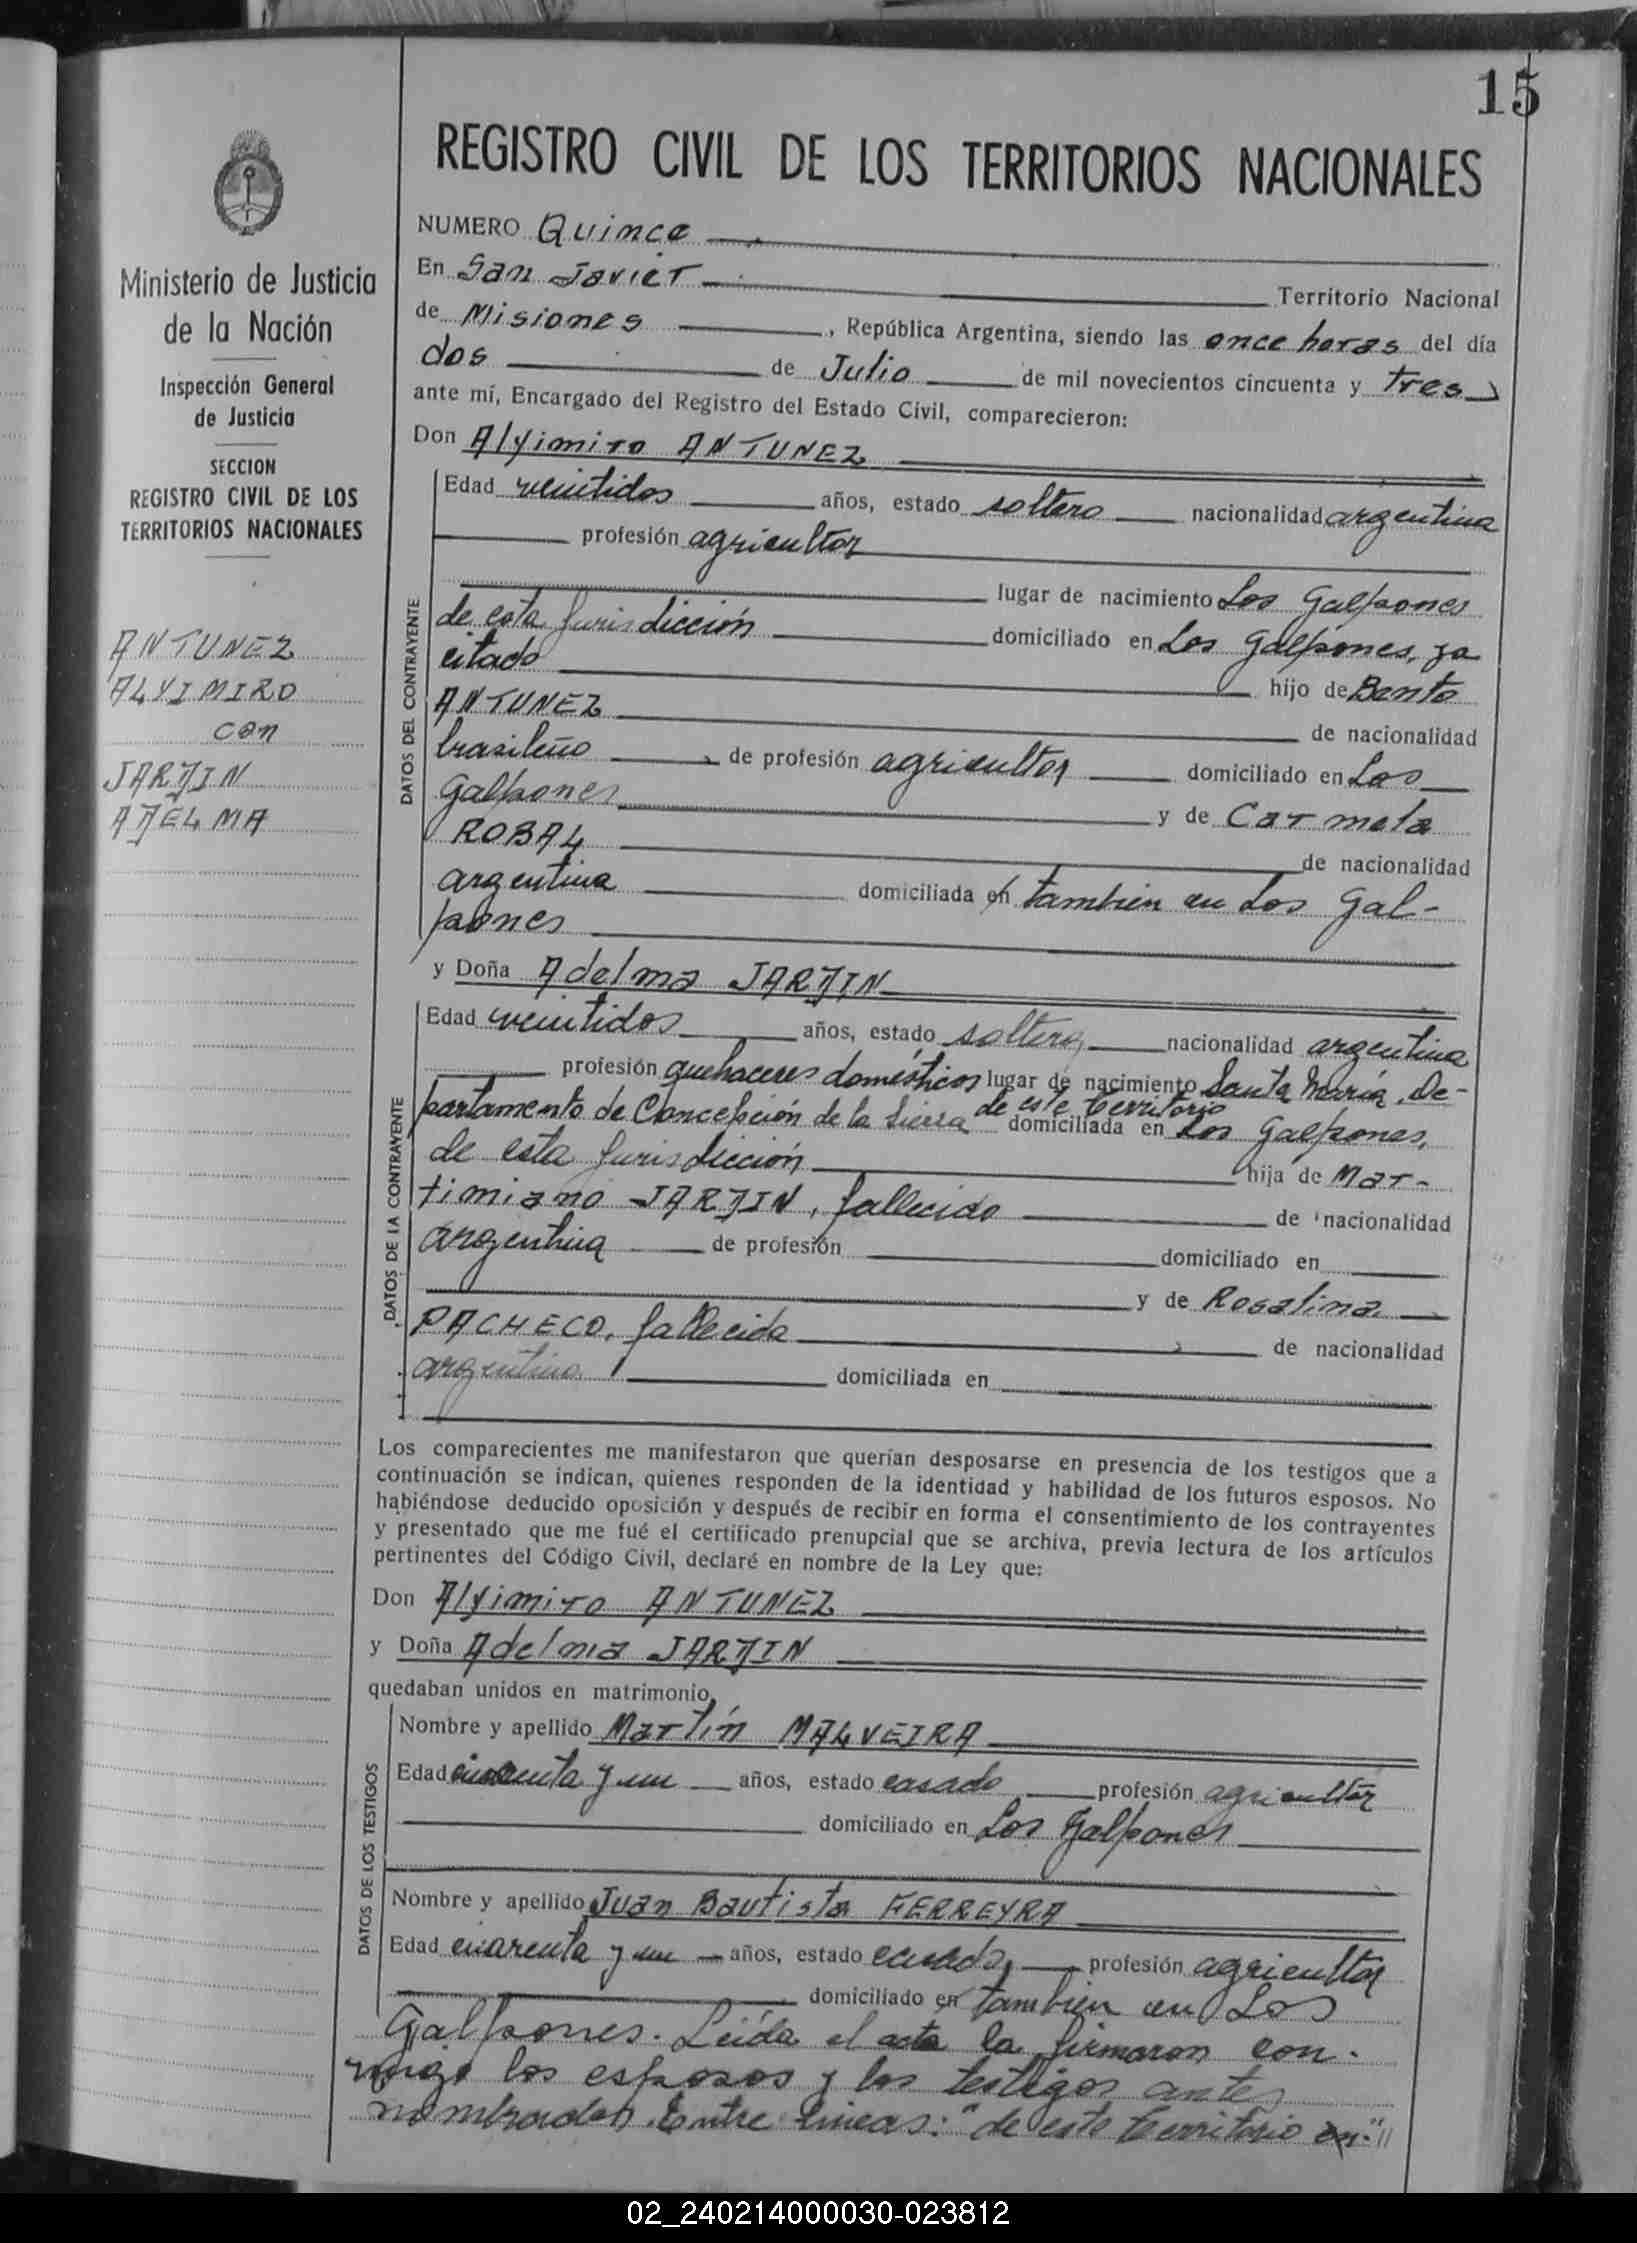 15
REGISTRO CIVIL DE LOS TERRITORIOS NACIONALES
Ministerio de Justicia
de la Nación
Inspección General
de Justicia
SECCION
REGISTRO CIVIL DE LOS
TERRITORIOS NACIONALES
ANTUNEZ
ALYIMIRO
con
JARDIN
ADELMA
NUMERO Quince
En San Javier Territorio Nacional
de Misiones, República Argentina, siendo las once horas del día
dos de Julio de mil novecientos cincuenta y tres
ante mí, Encargado del Registro del Estado Civil, comparecieron:
Don Alyimiro ANTUNEZ
DATOS DEL CONTRAYENTE
Edad veintidos años, estado soltero nacionalidad argentina
profesión agricultor
lugar de nacimiento Los Galpones
de esta Jurisdicción domiciliado en Los Galpones, ya
citado hijo de Bento
ANTUNEZ de nacionalidad
brasileño de profesión agricultor domiciliado en Los
Galpones y de Carmela
ROBAL de nacionalidad
argentina domiciliada en también en Los Gal-
pones
y Doña Adelma JARDIN
DATOS DE LA CONTRAYENTE
Edad veintidos años, estado soltera nacionalidad argentina
profesión quehaceres domésticos lugar de nacimiento Santa María, De-
partamento de Concepción de la Sierra de este territorio domiciliada en Los Galpones,
de esta Jurisdicción hija de Mar-
timiano JARDIN, fallecido de nacionalidad
argentina de profesión domiciliado en
y de Rosalina
PACHECO, fallecida de nacionalidad
argentina domiciliada en
Los comparecientes me manifestaron que querían desposarse en presencia de los testigos que a
continuación se indican, quienes responden de la identidad y habilidad de los futuros esposos. No
habiéndose deducido oposición y después de recibir en forma el consentimiento de los contrayentes
y presentado que me fué el certificado prenupcial que se archiva, previa lectura de los artículos
pertinentes del Código Civil, declaré en nombre de la Ley que:
Don Alyimiro ANTUNEZ
y Doña Adelma JARDIN
quedaban unidos en matrimonio.
DATOS DE LOS TESTIGOS
Nombre y apellido Martín MALVEIRA
Edad y un años, estado casado profesión agricultor
domiciliado en Los Galpones
Nombre y apellido Juan Bautista FERREYRA
Edad cuarenta y un años, estado casado, profesión agricultor
domiciliado en también en Los
Galpones. Leída el acta la firmaron con-
migo los esposos y los testigos antes
nombrados. Entre líneas: "de este territorio"
02_240214000030-023812